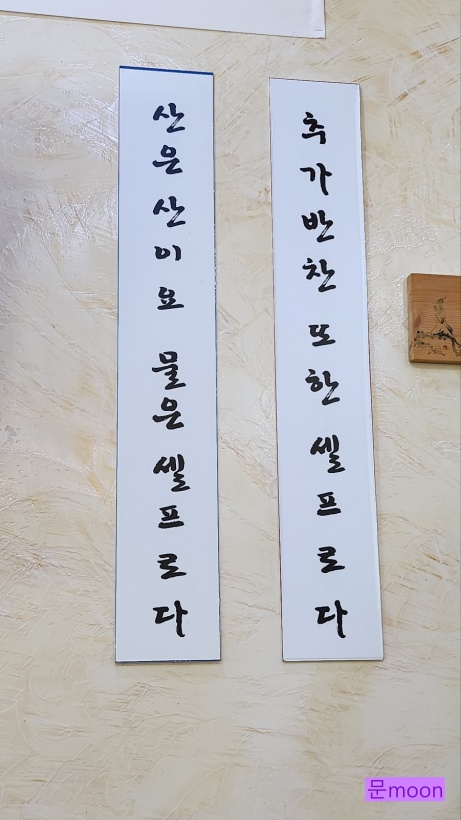 산은 산이요 물은 셀프로다
추가반찬 또한 셀프로다
문moon